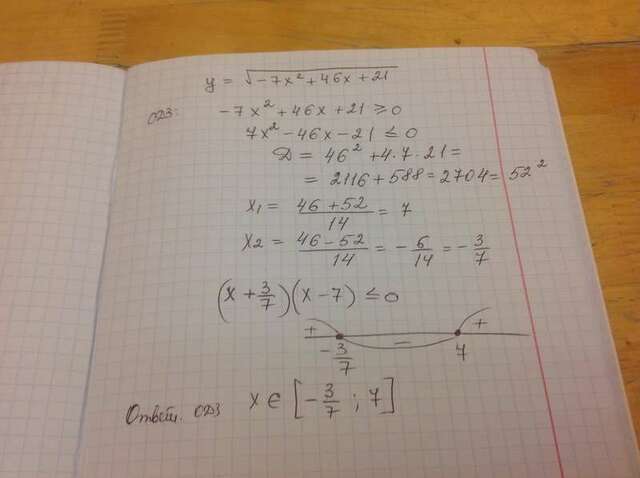 y = √(-7x² + 46x + 21)
ОДЗ: -7x² + 46x + 21 ≥ 0
7x² - 46x - 21 ≤ 0
D = 46² + 4·7·21 =
= 2116 + 588 = 2704 = 52²
x₁ = (46 + 52)/14 = 7
x₂ = (46 - 52)/14 = -6/14 = -3/7
(x + 3/7)(x - 7) ≤ 0
+ - +
-3/7 7
Ответ. ОДЗ x ∈ [-3/7 ; 7]